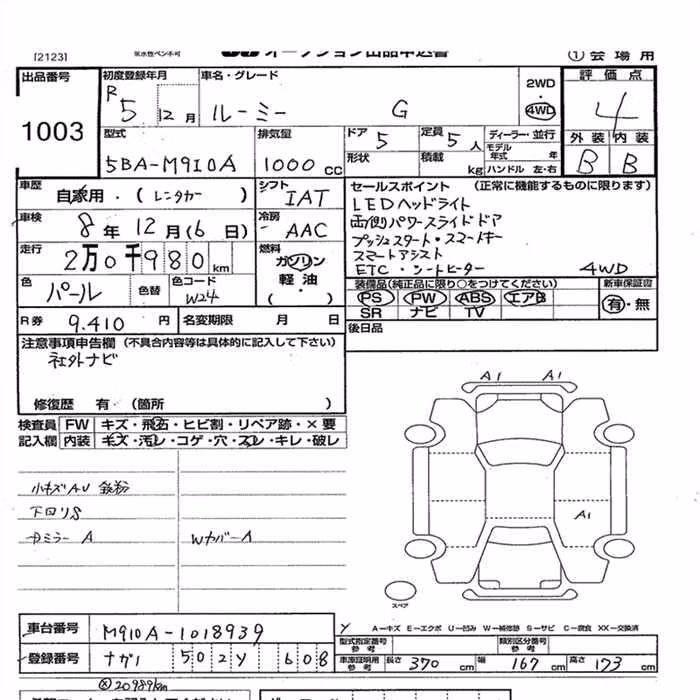 [2123] オークション出品申込書 ① 会 場 用
出品番号 初度登録年月 車名・グレード 2WD 評 価 点
1003 R 5 年 12 月 ルーミー G 4WD 4
型式 排気量 ドア 5 定員 5 人 ディーラー・並行 外 装 内 装
5BA-M910A 1000 cc 形状 積載 kg モデル年式 年 ハンドル 左・右 B B
車歴 自家用・( レンタカー ) シフト IAT セールスポイント (正常に機能するものに限ります)
車検 8 年 12 月 (6 日) 冷房 AAC LEDヘッドライト
両側パワースライドドア
走行 2万0千980 km 燃料 ガソリン 軽 油 ・( ) プッシュスタート・スマートキー
スマートアシスト
色 パール 色替 色コード W24 ETC・シートヒーター 4WD
装備品(純正品に限り○をつけてください) 新車保証書
PS PW ABS エアB 有・無
SR ナビ TV
R券 9.410 円 名変期限 月 日 後日品
注意事項申告欄 (不具合内容等は具体的に記入して下さい)
社外ナビ
修復歴 有・(箇所 )
検査員 FW キズ・飛石・ヒビ割・リペア跡・×要
記入欄 内装 キズ・汚レ・コゲ・穴・スレ・キレ・破レ
A1 A1
小キズAU 鉄粉
下回りS
A1
ミラー A Wカバー A
スペア
車台番号 M910A-1018939
A－キズ E－エクボ U－凹み W－補修跡 S－サビ C－腐食 XX－交換済
型式指定番号 参考 類別区分番号 参考
登録番号 ナガノ 502 Y 608
車庫証明用 参考 長さ 370 cm 幅 167 cm 高さ 173 cm
20989km